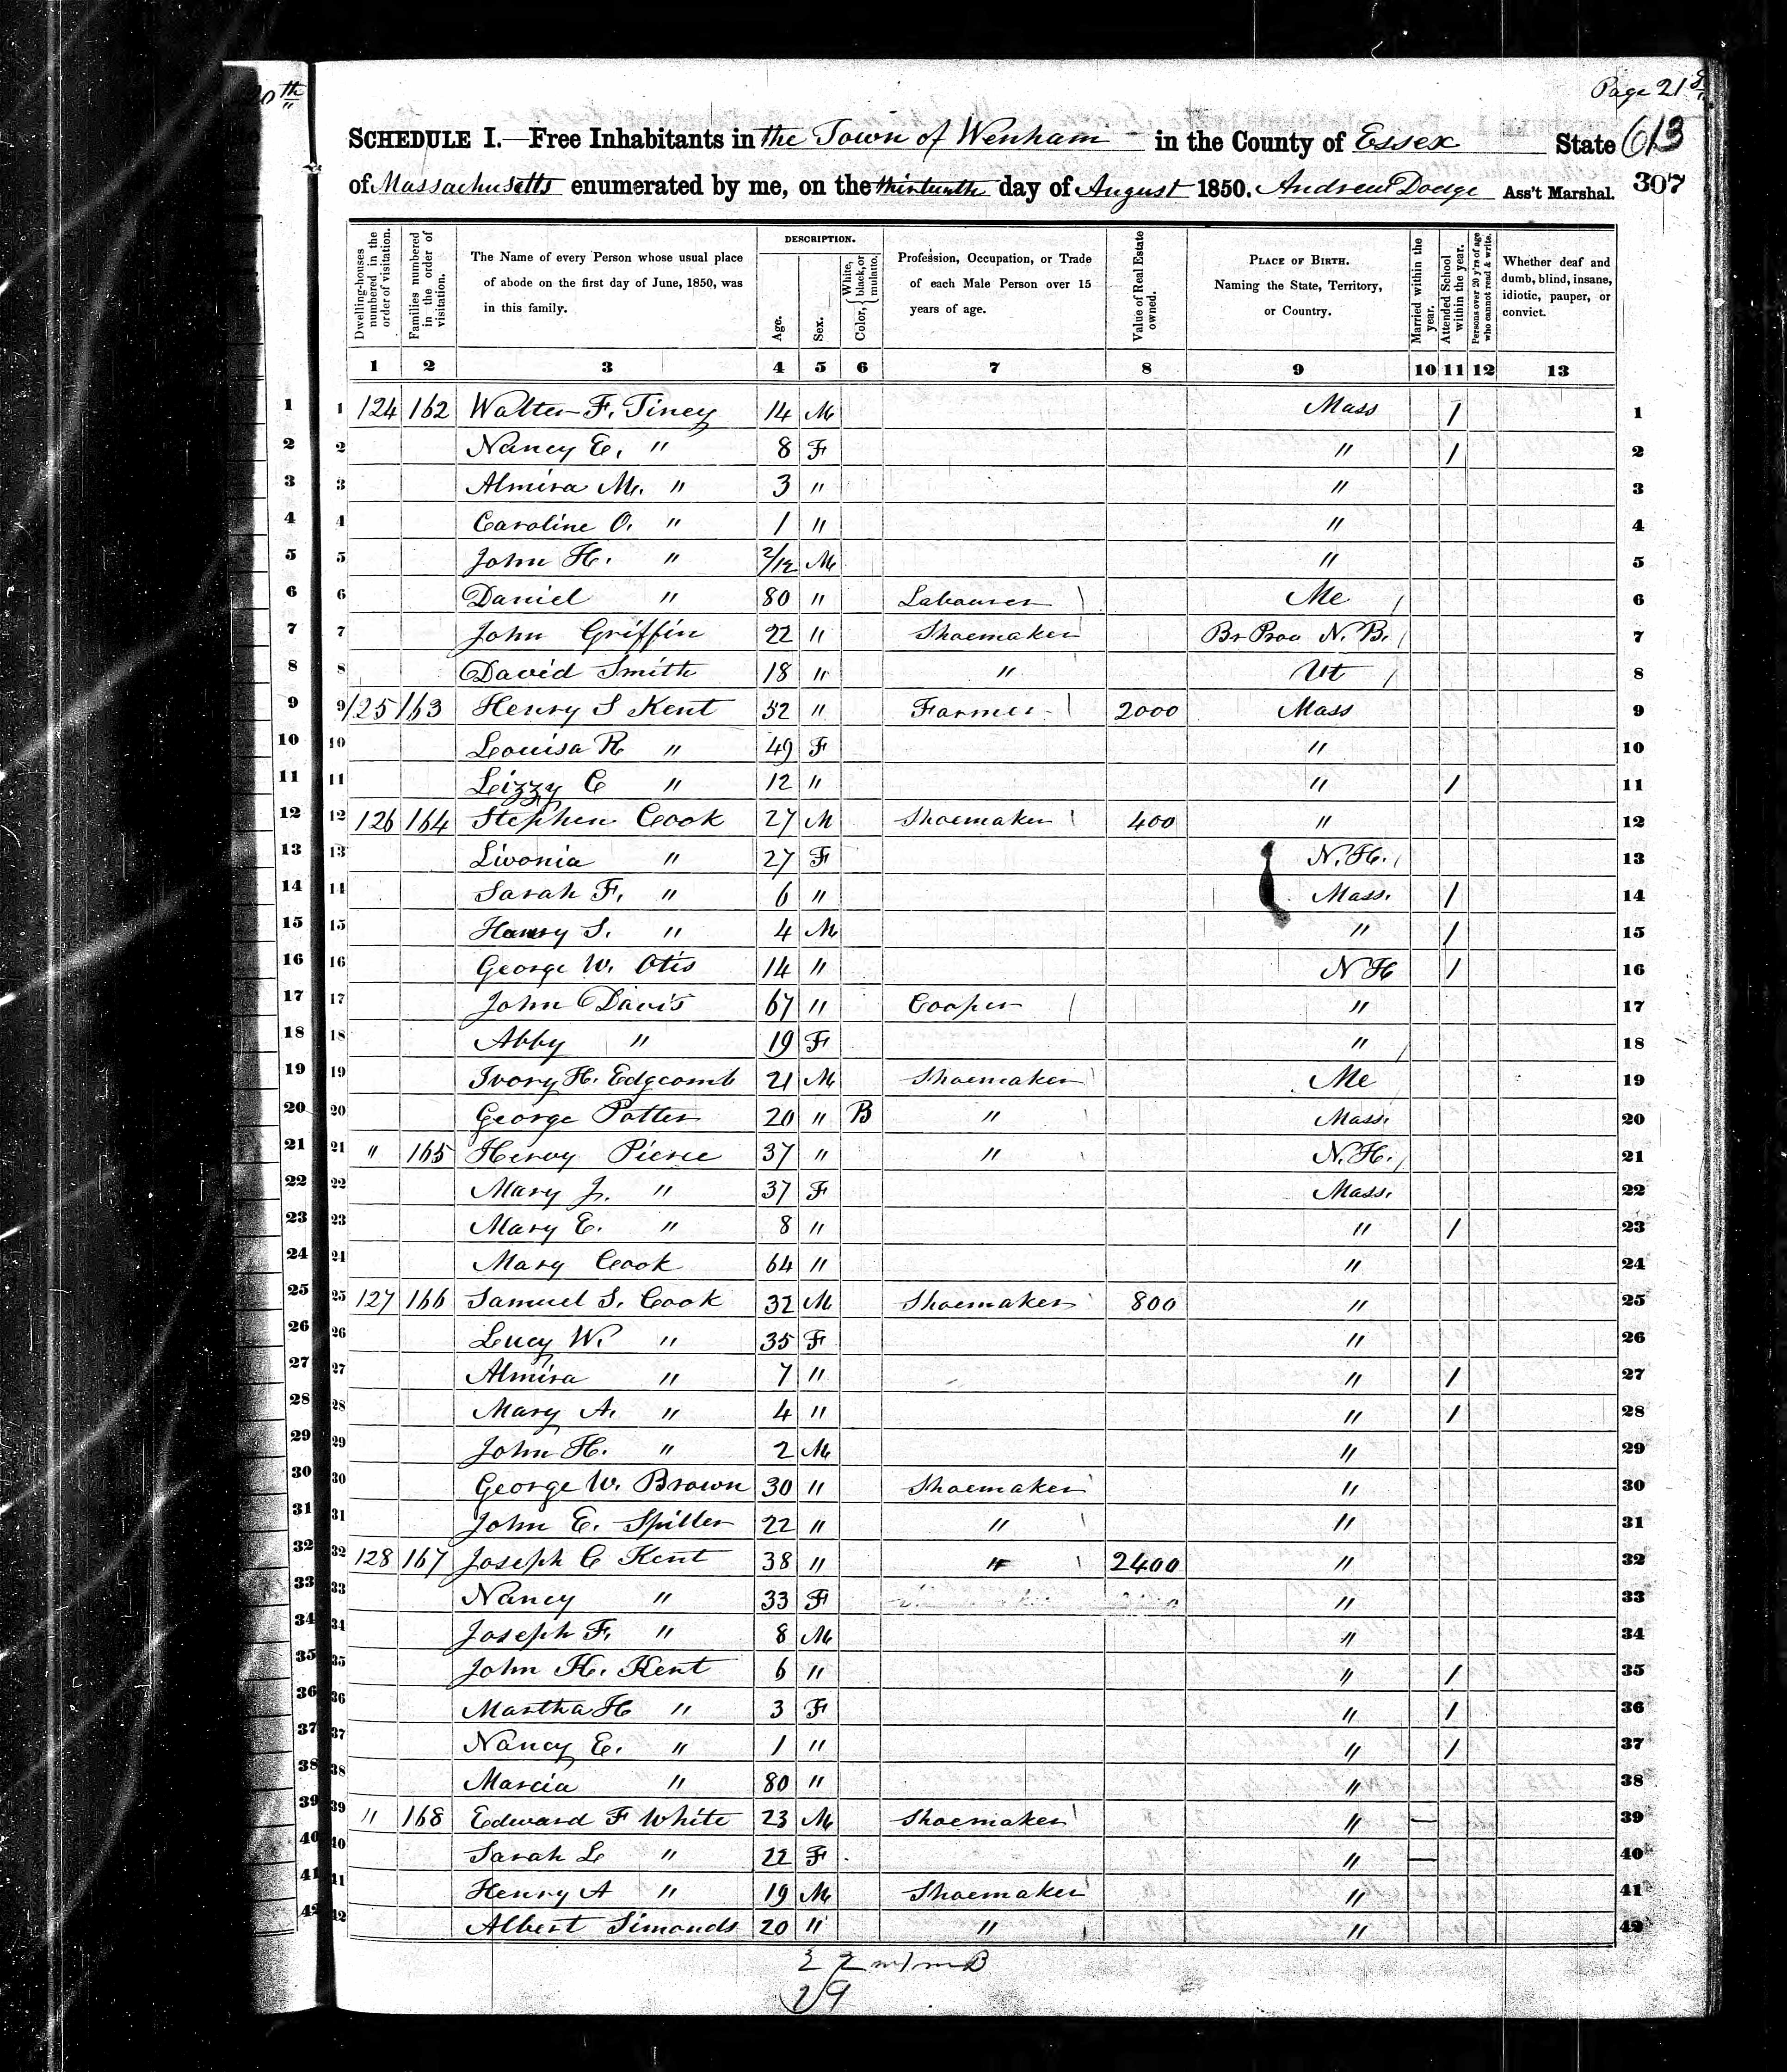 20th
"
Page 21st
SCHEDULE I.—Free Inhabitants in the Town of Wenham in the County of Essex State 613
of Massachusetts enumerated by me, on the thirteenth day of August 1850. Andrew Dodge Ass't Marshal. 307
Dwelling-houses numbered in the order of visitation.
Families numbered in the order of visitation.
The Name of every Person whose usual place of abode on the first day of June, 1850, was in this family.
DESCRIPTION.
Age.
Sex.
Color, { White, black, or mulatto.
Profession, Occupation, or Trade of each Male Person over 15 years of age.
Value of Real Estate owned.
PLACE OF BIRTH. Naming the State, Territory, or Country.
Married within the year.
Attended School within the year.
Persons over 20 y'rs of age who cannot read & write.
Whether deaf and dumb, blind, insane, idiotic, pauper, or convict.
1 2 3 4 5 6 7 8 9 10 11 12 13
1 1 124 162 Walter F. Tiney 14 M Mass / 1
2 2 Nancy E. " 8 F " / 2
3 3 Almira M. " 3 " " 3
4 4 Caroline O. " 1 " " 4
5 5 John H. " 2/12 M " 5
6 6 Daniel " 80 " Labourer Me 6
7 7 John Griffin 22 " Shoemaker Br Prov N. B. 7
8 8 David Smith 18 " " Vt 8
9 9 125 163 Henry S Kent 52 " Farmer 2000 Mass 9
10 10 Louisa R " 49 F " 10
11 11 Lizzy C " 12 " " / 11
12 12 126 164 Stephen Cook 27 M Shoemaker 400 " 12
13 13 Livonia " 27 F N. H. 13
14 14 Sarah F. " 6 " Mass. / 14
15 15 Henry S. " 4 M " / 15
16 16 George W. Otis 14 " N H / 16
17 17 John Davis 67 " Cooper " 17
18 18 Abby " 19 F " 18
19 19 Ivory H. Edgcomb 21 M Shoemaker Me 19
20 20 George Potter 20 " B " Mass. 20
21 21 " 165 Hervy Pierce 37 " " N. H. 21
22 22 Mary J. " 37 F Mass. 22
23 23 Mary E. " 8 " " / 23
24 24 Mary Cook 64 " " 24
25 25 127 166 Samuel S. Cook 32 M Shoemaker 800 " 25
26 26 Lucy W. " 35 F " 26
27 27 Almira " 7 " " / 27
28 28 Mary A. " 4 " " / 28
29 29 John H. " 2 M " 29
30 30 George W. Brown 30 " Shoemaker " 30
31 31 John E. Spiller 22 " " " 31
32 32 128 167 Joseph C Kent 38 " " 2400 " 32
33 33 Nancy " 33 F " 33
34 34 Joseph F. " 8 M " 34
35 35 John H. Kent 6 " " / 35
36 36 Martha H " 3 F " / 36
37 37 Nancy E. " 1 " " / 37
38 38 Marcia " 80 " " 38
39 39 " 168 Edward F White 23 M Shoemaker " — 39
40 40 Sarah L " 22 F " — 40
41 41 Henry A " 19 M Shoemaker " 41
42 42 Albert Simonds 20 " " " 42
29